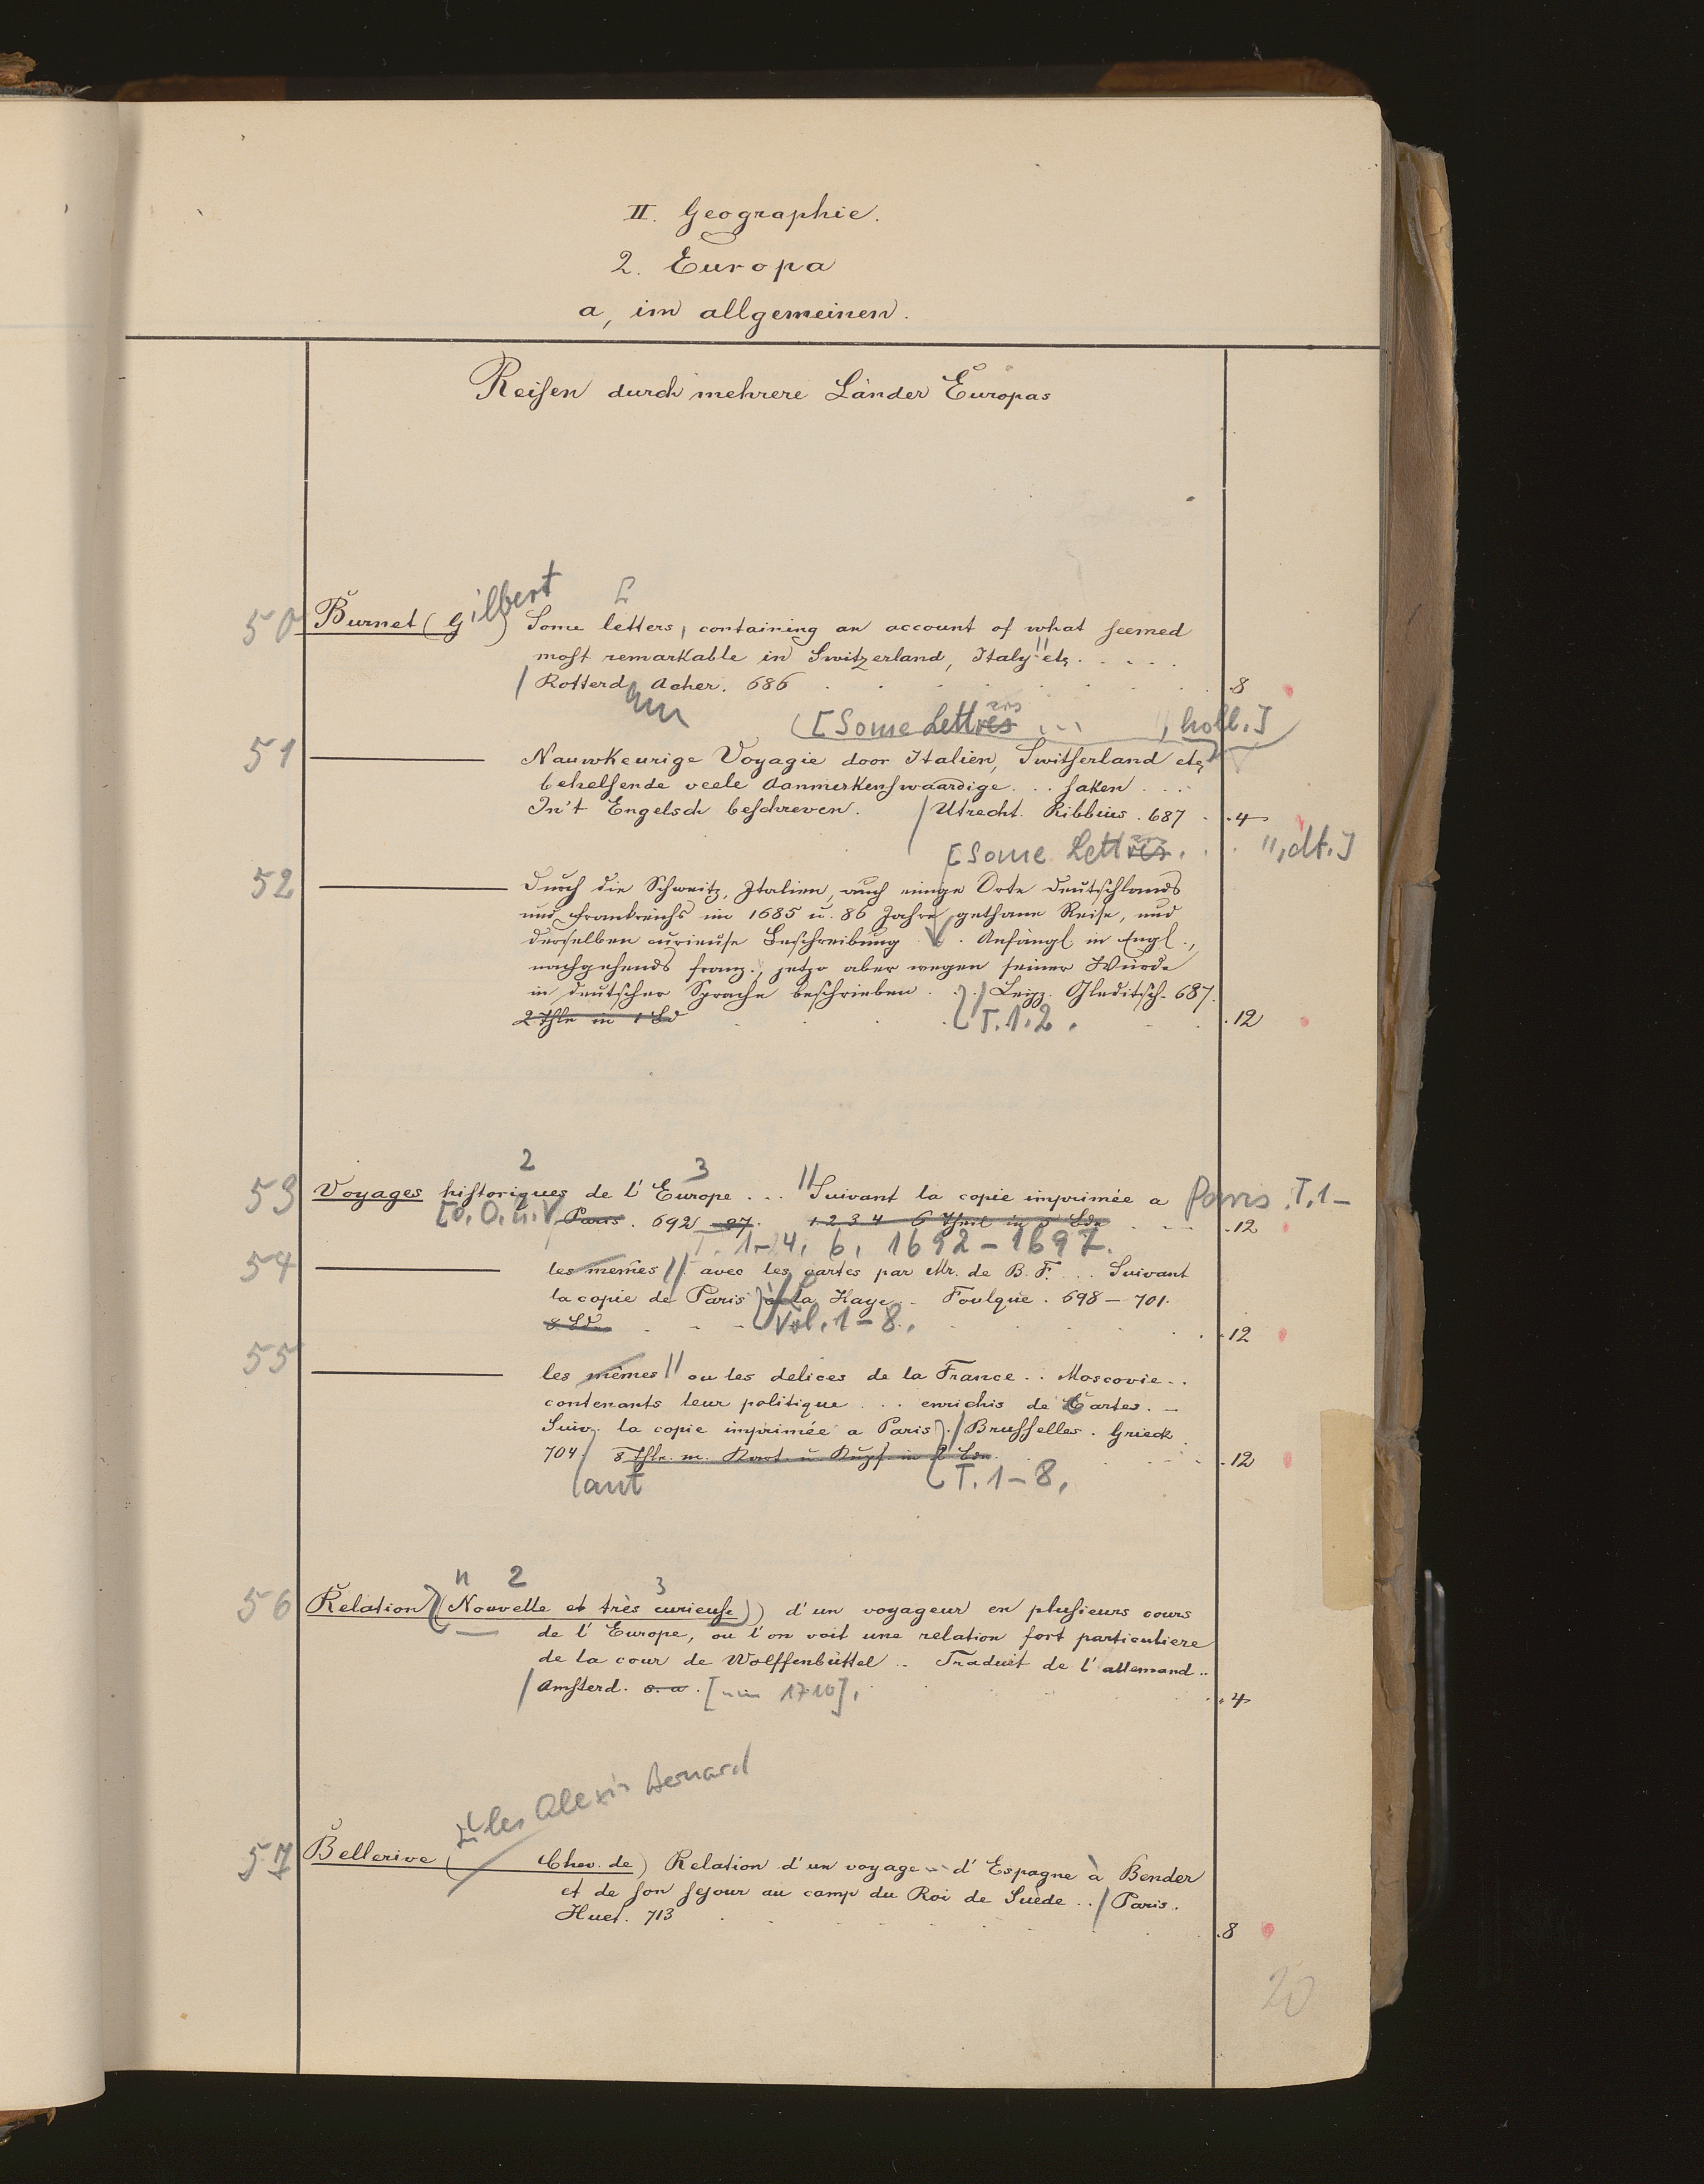 II. Geographie.
2. Europa
a, im allgemeinen.
Reisen durch mehrere Länder Europas
50 Burnet (Gilbert) Some letters, containing an account of what seemed
most remarkable in Switzerland, Italy || etc. . . . .
/ Rotterdam Acher. 686 . . . . 8
[Some Lettres ers ... ||, holl.]
51 ——— Nauwkeurige Voyagie door Italien, Switserland etc
behelsende veele Aanmerkenswaardige . . . saken . . .
In't Engelsch beschreven. / Utrecht. Ribbius. 687 . . 4
[Some Lettres ers . . . ||, dt.]
52 ——— Durch die Schweitz, Italien, auch einige Orte Deutschlands
und Frankreichs im 1685 u. 86 Jahre gethane Reise, und
derselben curieuse Beschreibung . . Anfängl in Engl.,
nachgehends franz., jetzo aber wegen seiner Würde
in deutscher Sprache beschrieben . . . / Leipz. Gleditsch. 687.
2 Thle in 1 Bd T. 1. 2. . 12
2 3
53 Voyages historiques de l'Europe . . . || Suivant la copie imprimée a Paris. T. 1-
[v. O. u. V. Paris. 692 - 97. 1 2 3 4 6 Theil in 5 Bdn . . . . 12
T. 1-4, 6, 1692-1697.
54 ——— les memes || avec les cartes par Mr. de B. F. . . . Suivant
la copie de Paris) à la Haye . . Foulque. 698 - 701.
8 Bde. Vol. 1-8. . . 12
55 ——— les mêmes || ou les delices de la France . . Moscovie . .
contenants leur politique . . . enrichis de Cartes. -
Suiv. la copie imprimée a Paris). / Brusselles. Grieck
704. 8 Thle. m. Port. u Kupf. in 2 Bdn. . . 12
T. 1-8.
n 2 3
56 Relation (Nouvelle et très curieuse) d'un voyageur en plusieurs cours
de l'Europe, ou l'on voit une relation fort particuliere
de la cour de Wolffenbüttel . . Traduit de l'allemand . .
/ Amsterd. s. a. [um 1710]. . . 4
Alexis Bernard
57 Bellerive ( Chev. de) Relation d'un voyage - d'Espagne à Bender
et de son sejour au camp du Roi de Suède . . / Paris.
Huet. 713 . . . . 8
20